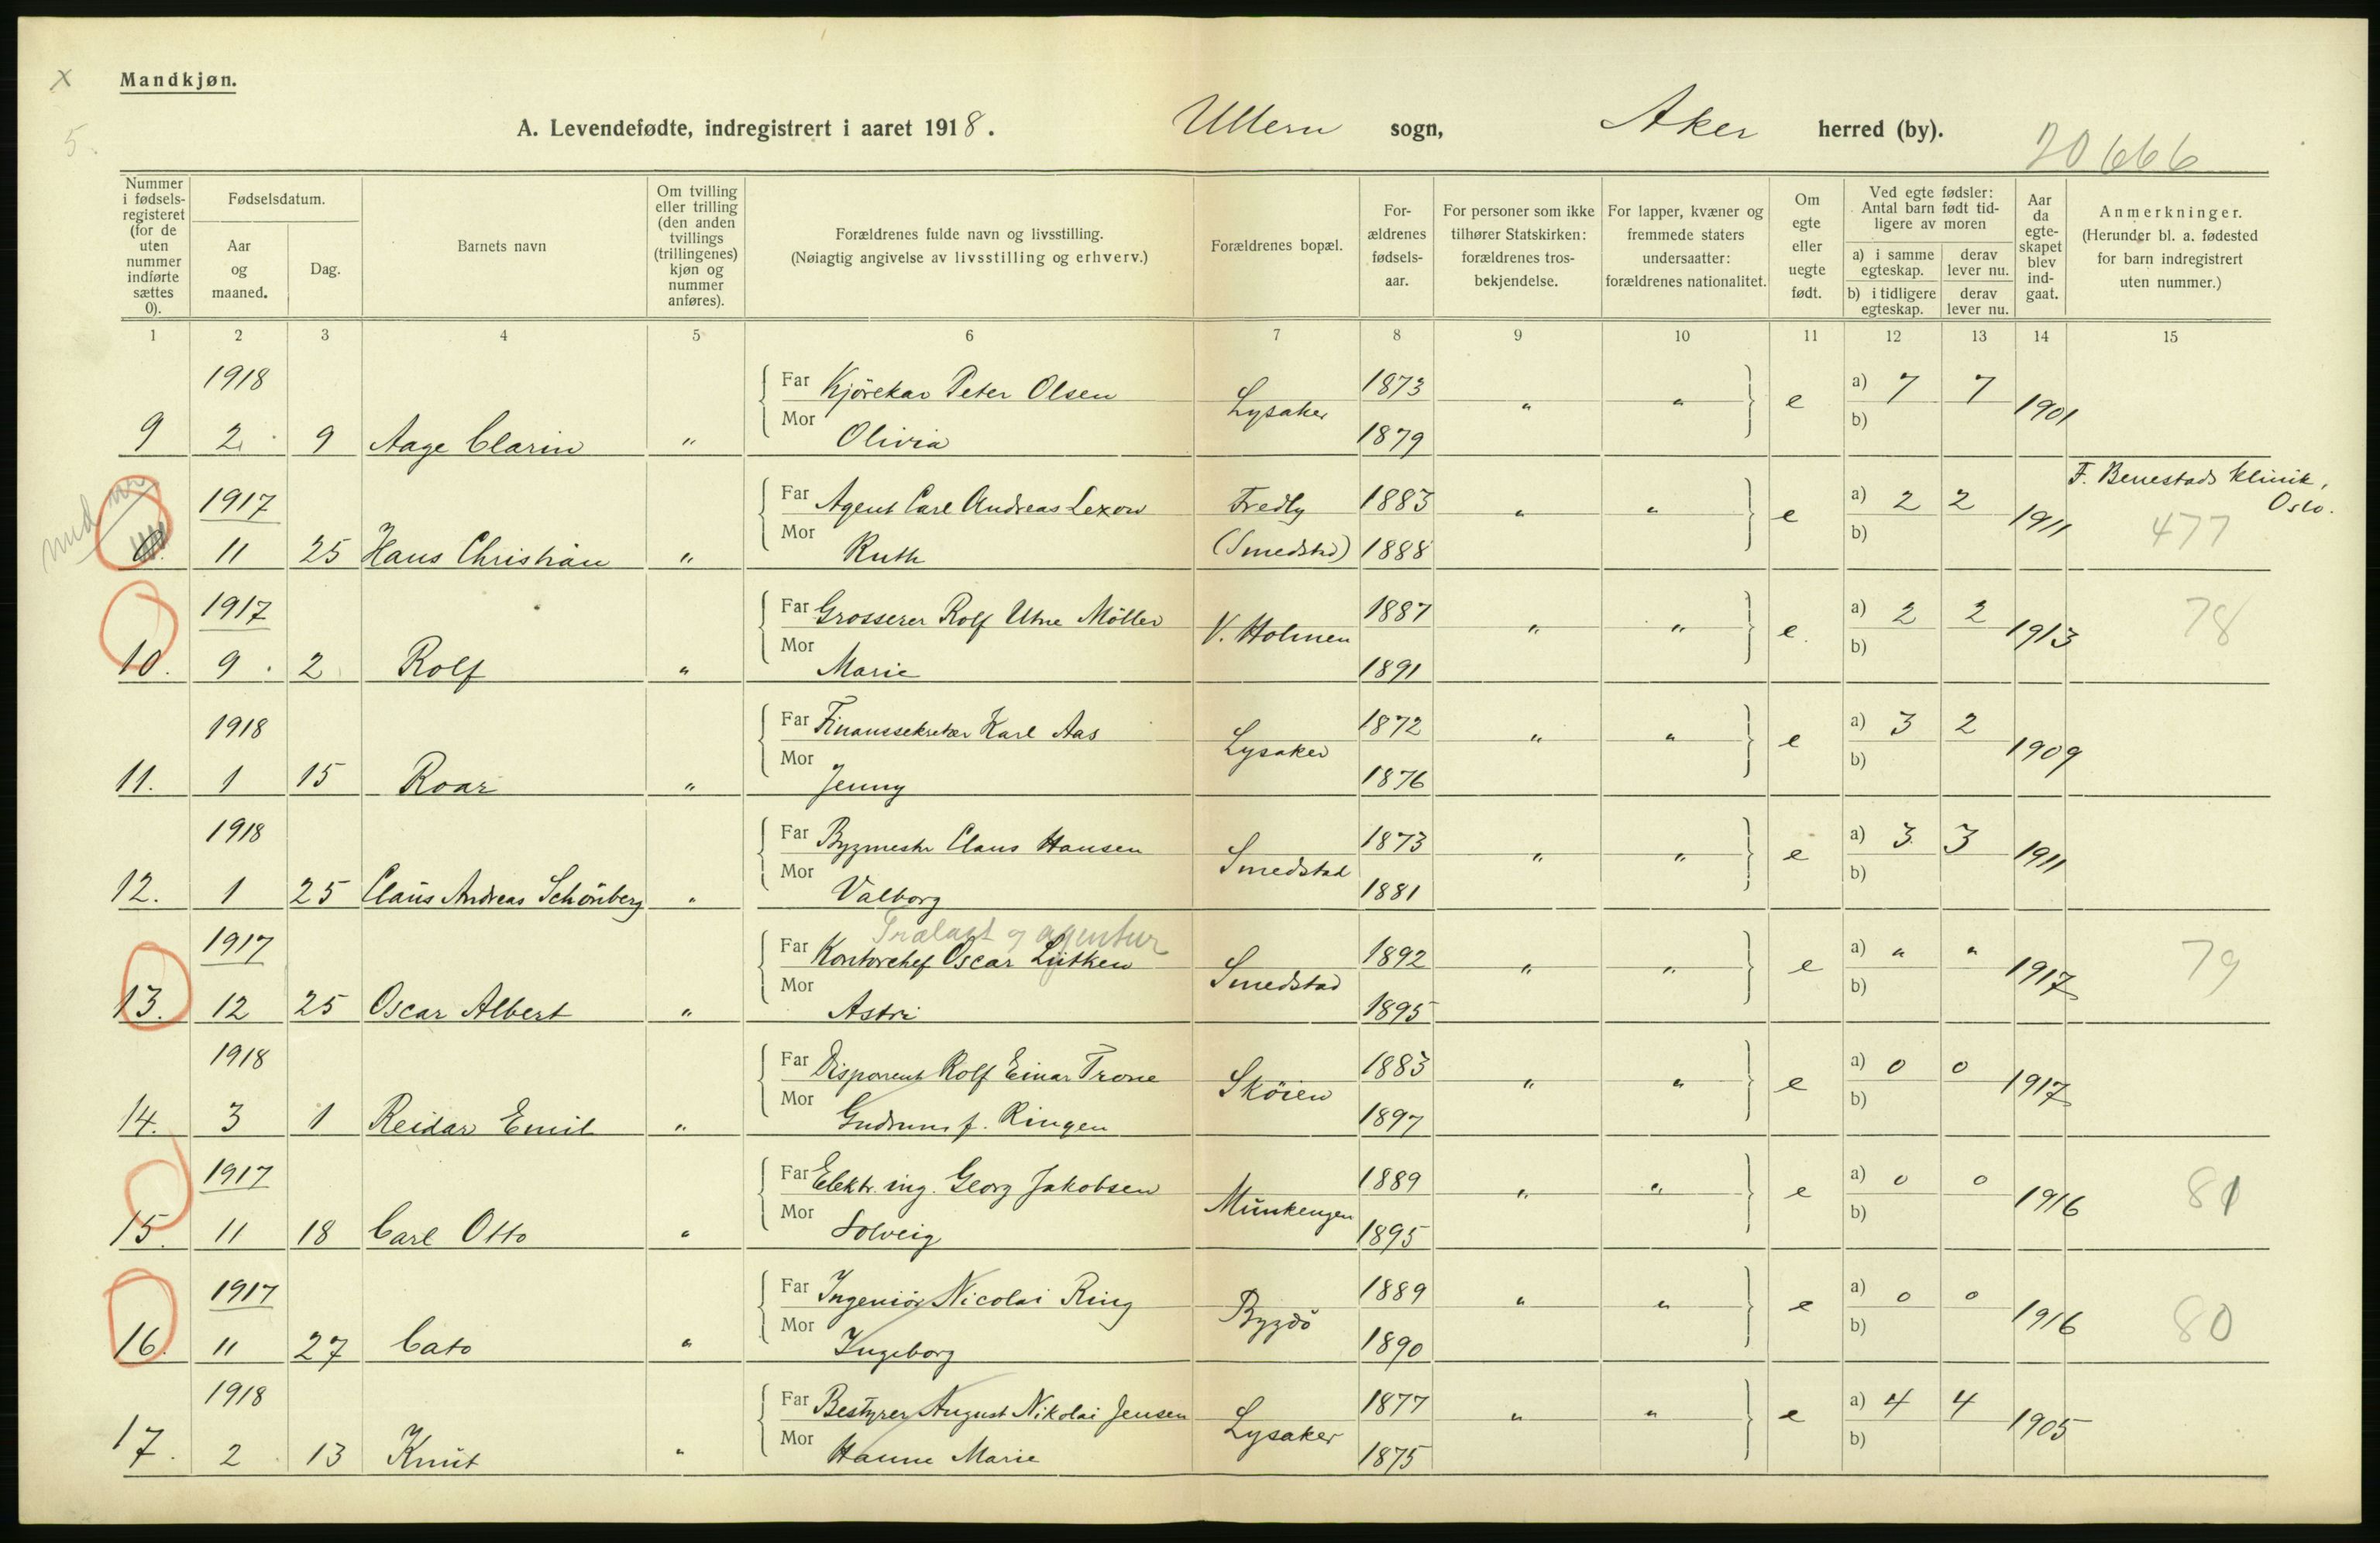 x Mandkjøn.
5.
A. Levendefødte, indregistrert i aaret 1918. Ullern sogn, Aker herred (by).
20666
Nummer i fødsels-registeret (for de uten nummer indførte sættes 0).
Fødselsdatum.
Aar og maaned.
Dag.
Barnets navn
Om tvilling eller trilling (den anden tvillings (trillingenes) kjøn og nummer anføres).
Forældrenes fulde navn og livsstilling.
(Nøiagtig angivelse av livsstilling og erhverv.)
Forældrenes bopæl.
For-ældrenes fødsels-aar.
For personer som ikke tilhører Statskirken: forældrenes tros-bekjendelse.
For lapper, kvæner og fremmede staters undersaatter: forældrenes nationalitet.
Om egte eller uegte født.
Ved egte fødsler: Antal barn født tid-ligere av moren
a) i samme egteskap.
derav lever nu.
b) i tidligere egteskap.
derav lever nu.
Aar da egte-skapet blev ind-gaat.
Anmerkninger.
(Herunder bl. a. fødested for barn indregistrert uten nummer.)
1 2 3 4 5 6 7 8 9 10 11 12 13 14 15
1918 Far Kjörekar Peter Olsen Lysaker 1873 " " e a) 7 7 1901
9 2. 9 Aage Clarin " Mor Olivia 1879 b)
F. Benestads klinik, Oslo.
1917 Far Agent Carl Andreas Lexow Fredly 1883 " " e a) 2 2 1911 477
11 25 Hans Christian " Mor Ruth (Smedstd) 1888 b)
1917 Far Grosserer Rolf Utne Möller V. Holmen 1887 " " e. a) 2 2 1913 78
10. 9. 2 Rolf " Mor Marie 1891 b)
1918 Far Finanssekretær Karl Aas Lysaker 1872 " " e a) 3 2 1909
11. 1 15 Roar " Mor Jenny 1876 b)
1918 Far Bygmestr Claus Hansen Smedstad 1873 " " e a) 3. 3 1911
12. 1 25 Claus Andreas Schönberg " Mor Valborg 1881 b)
Trælast og agentur
1917 Far Kontorchef Oscar Lütken Smedstad 1892 " " e a) " " 1917 79
13. 12 25 Oscar Albert " Mor Astri 1895 b)
1918 Far Disponent Rolf Einar Trone Sköien 1883 " " e a) 0 0 1917
14. 3 1 Reidar Emil " Mor Gudrun f. Ringen 1897 b)
1917 Far Elektr. ing. Georg Jakobsen Munkengen 1889 " " e a) 0 0 1916 81
15. 11 18 Carl Otto " Mor Solveig 1895 b)
1917 Far Ingeniör Nicolai Ring Bygdö 1889 " " e a) 0 0 1916 80
16. 11 27 Cato " Mor Ingeborg 1890 b)
1918 Far Bestyrer August Nikolai Jensen Lysaker 1877 " " e a) 4 4 1905
17. 2 13 Knut " Mor Hanne Marie 1875 b)